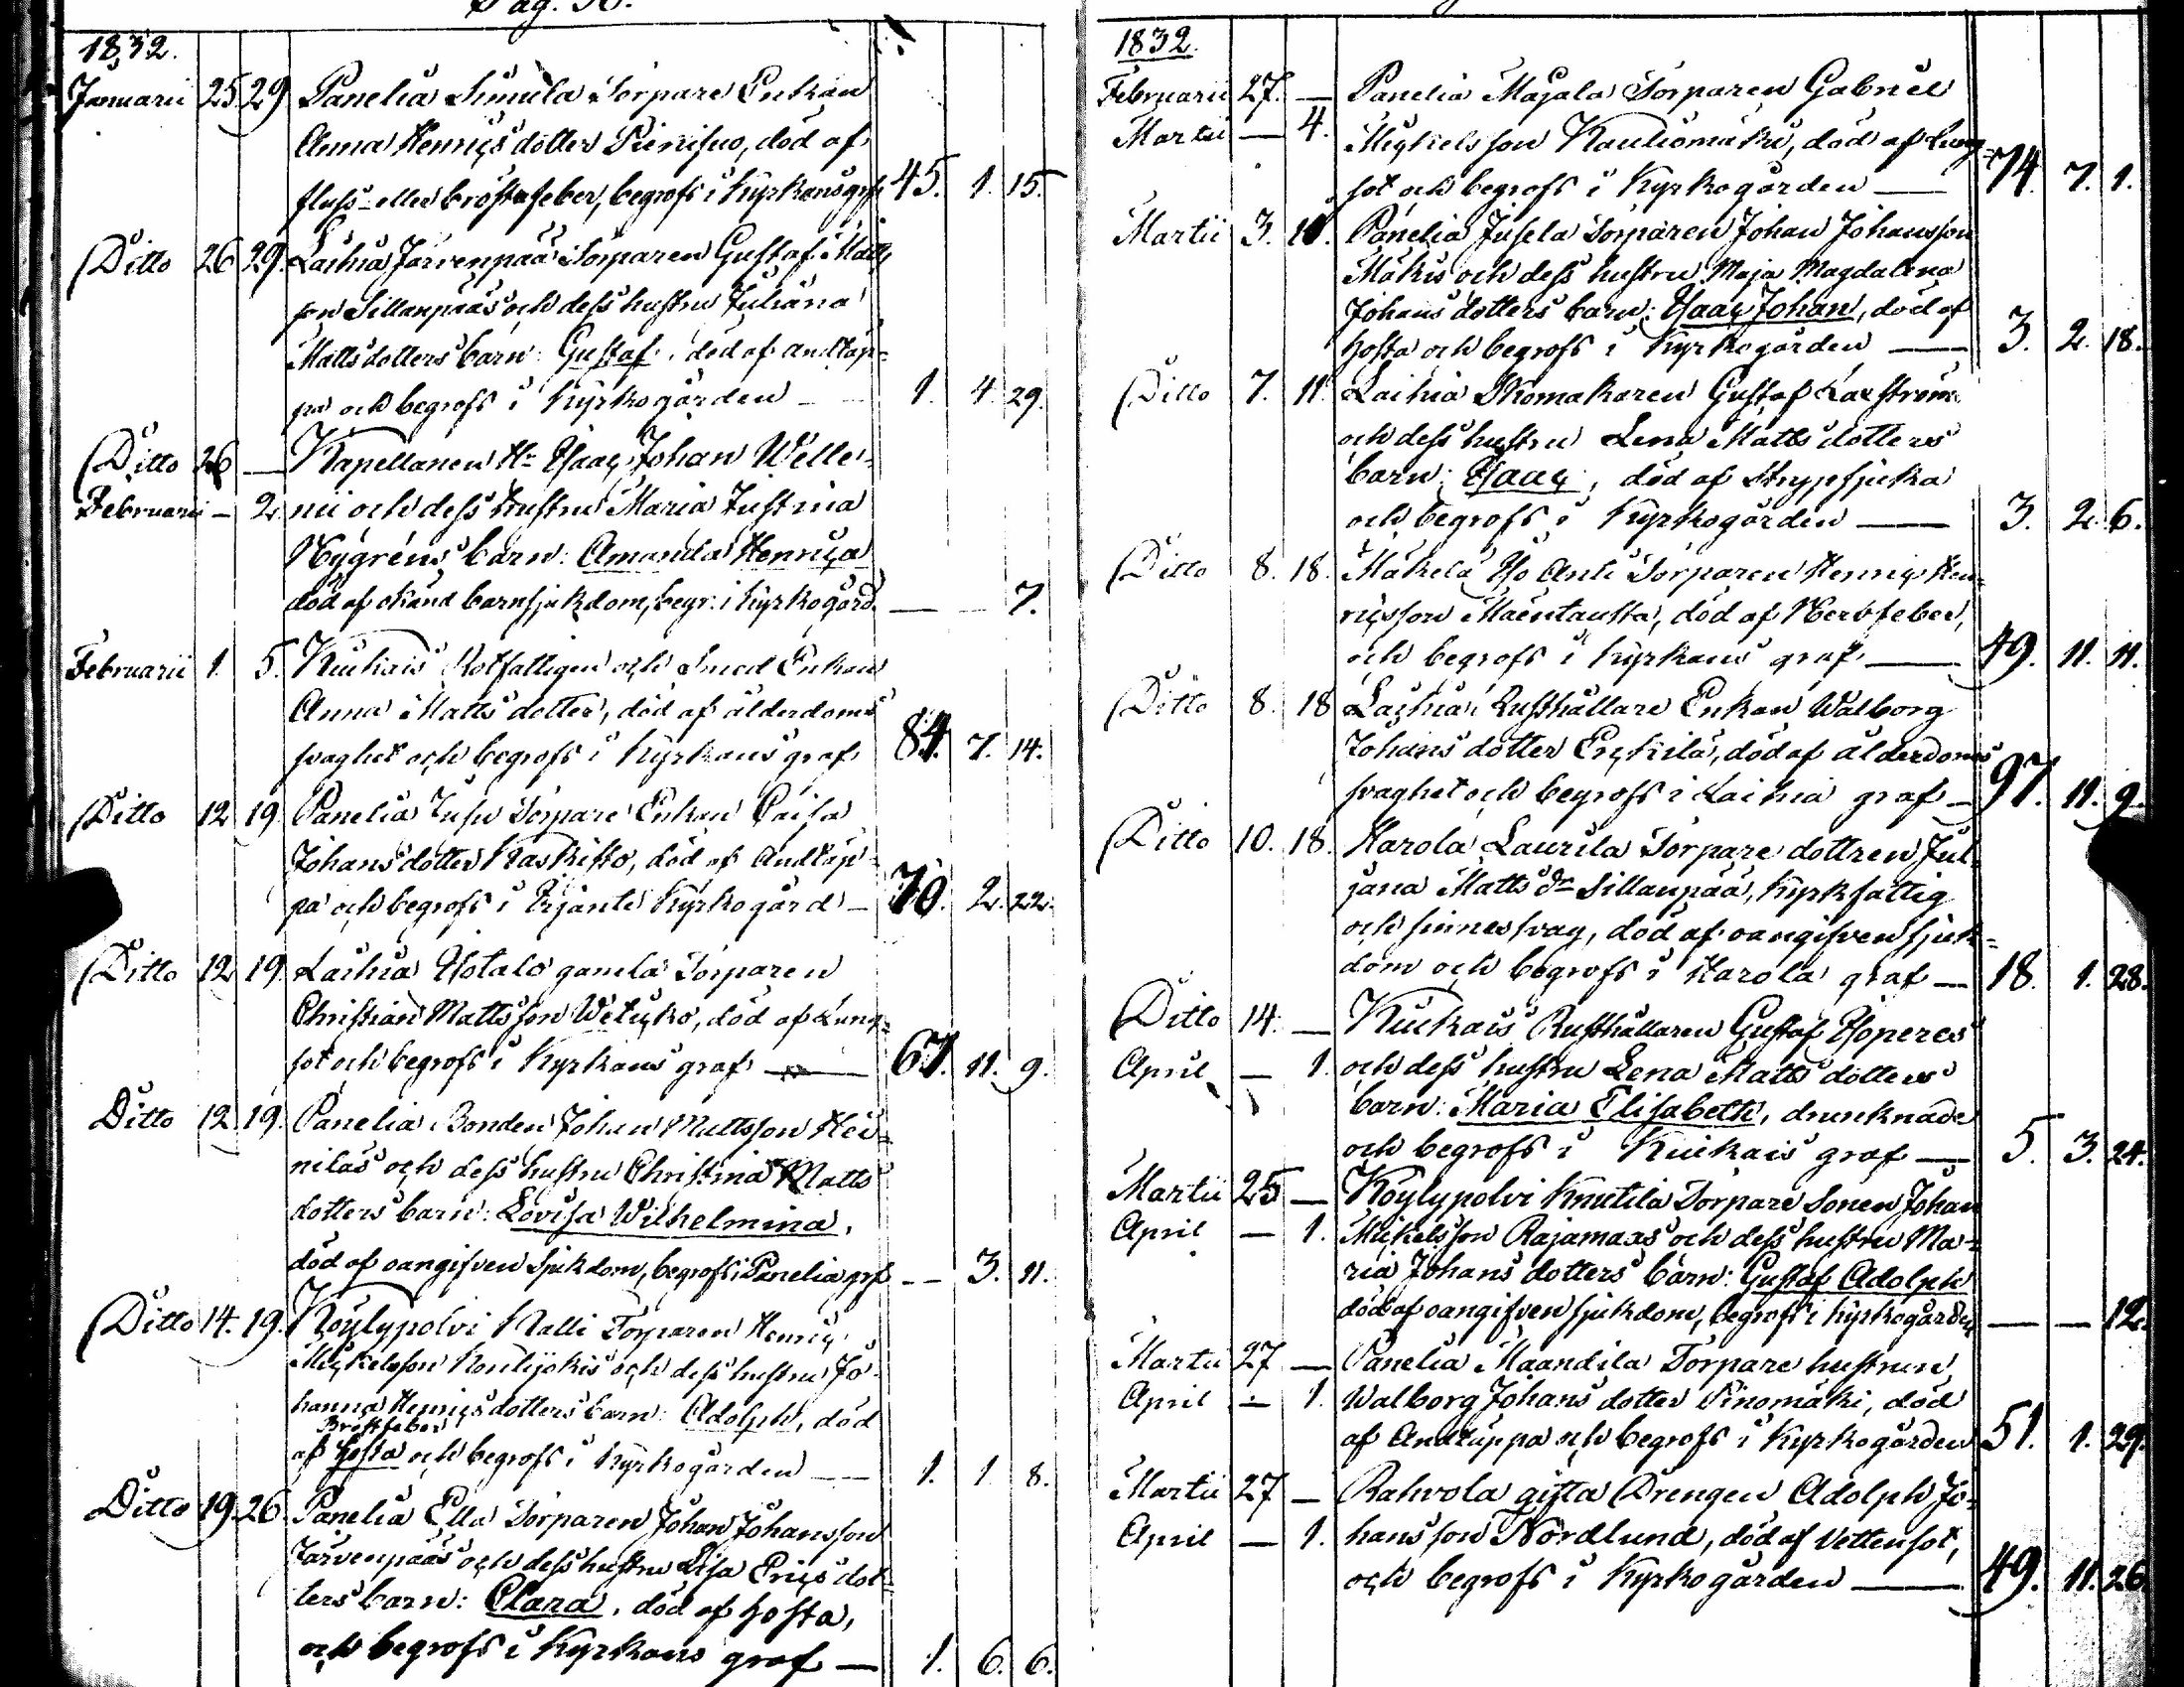 Pag. 30.
1832.
Januarii 25 29 Panelia Simula Torpare Enkan
Anna Henricsdotter Pinisuo, död af
fluss- eller bröstfeber, begrofs i Kyrkans grf 45. 1. 15.
Ditto 26 29. Laihia Järvenpää Torparen Gustaf Matts
son Sillanpääs och dess hustru Juliana
Mattsdotters barn: Gustaf, död af andtäp-
pa och begrofs i Kyrkogården 1. 4. 29.
Ditto 26 — Kapellanen Hr Isaac Johan Welle-
Februarii — 2. nii och dess hustru Maria Justina
Nygréns barn: Amanda Henrica
död af okänd barnsjukdom, begr. i kyrkogård. — 7.
Februarii 1. 5. Kiukais Rotfattigen och Smed Enkan
Anna Mattsdotter, död af ålderdoms
svaghet och begrofs i Kyrkans graf 84. 7. 14.
Ditto 12 19 Panelia Jusu Torpare Enkan Caisa
Johansdotter Kaskisto, död af Andtäp-
pa och begrofs i Kjanti Kyrkogård — 70. 2. 22.
Ditto 12 19. Laihia Isotalo gamla Torparen
Christian Mattsson Wetycko, död af Lung-
sot och begrofs i Kyrkans graf — 67. 11. 9.
Ditto 12 19. Panelia Bonden Johan Mattsson Hei-
niläs och dess hustru Christina Matts
dotters barn: Lovisa Wilhelmina,
död af oangifven Sjukdom, begrofs i Panelia grf — — 3. 11.
Ditto 14. 19. Köylypolvi Kalli Torparen Henric
Mickelsson Kontijokis och dess hustru Jo-
hanna Henricsdotters barn: Adolph, död
Bröstfeber
af hosta och begrofs i Kyrkogården — 1. 1. 8.
Ditto 19. 26. Panelia Ella Torparen Johan Johansson
Järvenpääs och dess hustru Lisa Ericsdot-
ters barn: Clara, död af hosta,
och begrofs i Kyrkans graf — 1. 6. 6.
1832.
Februarii 27. — Panelia Majala Torparen Gabriel
Martii — 4. Mickelsson Rautiomäki, död af lung-
sot och begrofs i Kyrkogården — 74. 7. 1.
Martii 3. 11. Panelia Jusela Torparen Johan Johansson
Mäkis och dess hustru Maja Magdalena
Johansdotters barn: Isaac Johan, död af
hosta och begrofs i Kyrkogården — 3. 2. 18.
Ditto 7. 11. Laihia Skomakaren Gustaf Laxström
och dess hustru Lena Mattsdotters
barn: Isaac, död af Strypsjuka
och begrofs i Kyrkogården — 3. 2. 6.
Ditto 8. 18. Mäkelä Iso Anti Torparen Henric Hen-
ricsson Mäentausta, död af Nervfeber,
och begrofs i Kyrkans graf — 49. 11. 11.
Ditto 8. 18 Laihia Rusthållare Enkan Walborg
Johansdotter Erckilä, död af ålderdoms
svaghet och begrofs i Laihia graf — 97. 11. 9.
Ditto 10. 18. Harola Laurila Torpare dottren Jul-
jana Matts dr Sillanpää, Kyrkfattig
och sinnessvag, död af oangifven sjuk-
dom och begrofs i Harola graf — 18. 1. 28.
Ditto 14. — Kiukais Rusthållaren Gustaf Isoperes
April — 1. och dess hustru Lena Mattsdotters
barn: Maria Elisabeth, drunknade
och begrofs i Kiukais graf — 5. 3. 24.
Martii 25 — Köylypolvi Knutila Torpare Sonen Johan
April — 1. Mickelsson Rajamaas och dess hustru Ma-
ria Johansdotters barn: Gustaf Adolph
död af oangifven sjukdom, begrofs i kyrkogården — — 12.
Martii 27 — Panelia Maandila Torpare hustrun,
April — 1. Walborg Johansdotter Pinomäki, död
af Andtäppa och begrofs i Kyrkogården 51. 1. 29.
Martii 27 — Rahvola gifta Drengen Adolph Jo-
April — 1. hansson Nordlund, död af Vattensot,
och begrofs i Kyrkogården — 49. 11. 26.